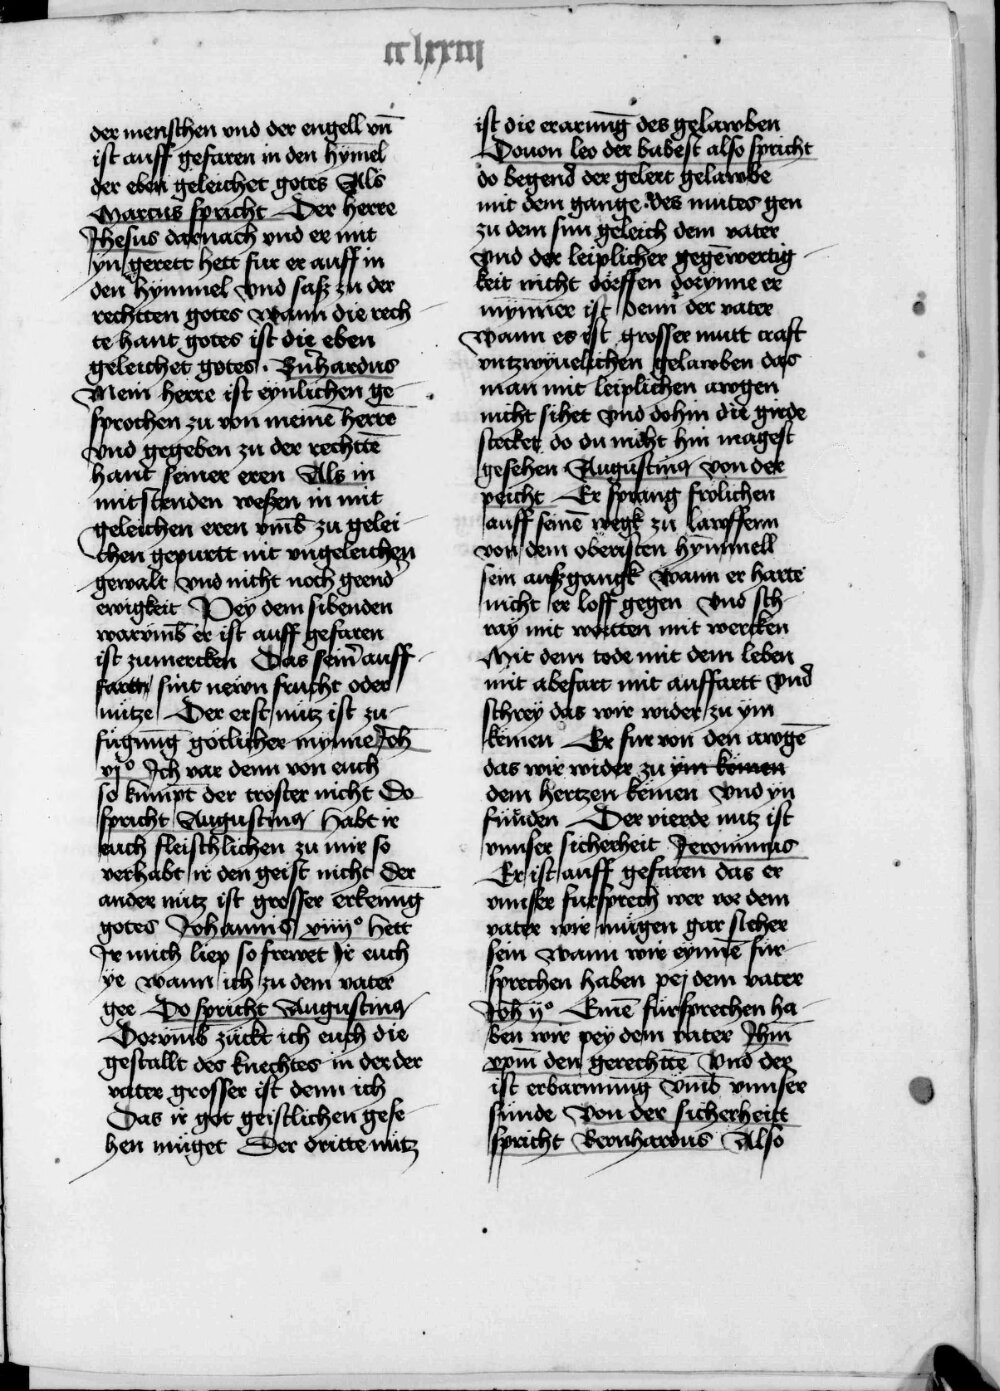 cclxxiij
der menschen vnd der engell vn̄
ist auff gefaren in den hymel
der eben geleichet gotes Als
Marcus spricht Der herre
Jhesus darnach vnd er mit
yn gerett hett fur er auff in
den hymmel vnd sasz zu der
rechtten gotes wann die rech
te hant gotes ist die eben
geleichet gotes. Bernhardus
Mein herre ist eynlichen ge
sprochen zu von meinē herre
vnd gegeben zu der rechttē
hant seiner eren Als in
mitstenden weßen in mit
geleichen eren vmb zu gelei
chen gepurtt nit vngeleichen
gewalt vnd nicht noch geend
ewigkeit Pey dem sibenden
warvmb er ist auff gefaren
ist zumercken Das sein auff
fartn sint newn frucht oder
nütze Der erst nütz ist zu
fügung götlicher mynne Joh
vjº Ich var denn von euch
so kumpt der troster nicht Do
spricht Augustinus habt ir
euch fleischlichen zu mir so
verhabt ir den geist nicht Der
ander nütz ist grosser erkenūg
gotes Johannis xiiijº Hett
Ir mich liep so frewet Ir euch
ye wann ich zu dem vater
gee Do spricht Augustinus
Dorvmb zückt ich euch die
gestallt des knechtes in der der
vater grosser ist denn ich
Das ir got geistlichen gese
hen müget Der dritte nütz
ist die erarung des gelawben
Douon leo der babest also spricht
do begend der gelert gelawbe
mit dem gange des mutes gen
zu dem sun geleich dem vater
vnd der leiplicher gegēwertig
keit nicht dörffen dorynne er
mynner ist denn der vater
wann es ist grosser mutt craft
vntzwyuelichen gelawben das
man mit leiplichen awgen
nicht sihet vnd dohin die girde
stecket do du nicht hin magest
gesehen Augustinus von der
peicht Er sprang frolichen
auff seinē wegk zu lawffenn
von dem oberisten hymmell
sein auszgangk wann er harte
nicht er loff gegen vnd sch
ray mit wortten mit wercken
Mit dem tode mit dem leben
mit abefart mit auffartt vnd
schrey das wir wider zu ym
kemen Er fur von den awgē
das wir wider zu ym kömen
dem hertzen kemen vnd yn
fünden Der vierde nutz ist
vnnser sicherheit Jeronimus
Er ist auff gefaren das er
vnnser fursprech wer vor dem
vater wir mügen gar sicher
sein wann wir eynnē für
sprechen haben pej dem vater
Joh ijº Einē fürsprechen ha
ben wir pey dem vater Jhm̄
xpm̄ den gerechttē vnd der
ist erbarmung vmb vnnser
sünde von der sicherheitt
spricht Bernhardus Also